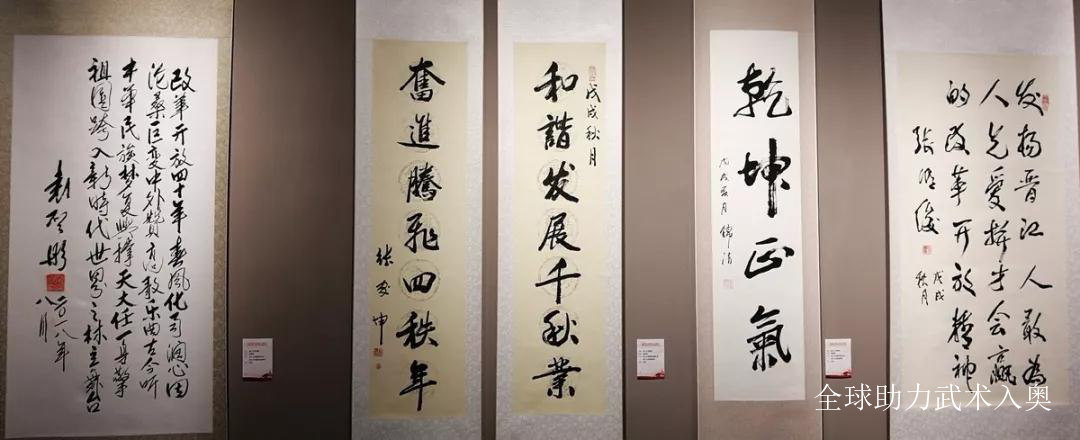 发扬晋江人敢为
人先爱拼才会赢
的改革开放精神
戊戌
秋月
乾坤正氣
戊戌夏月
戊戌秋月
和諧发展千秋業
奮進騰飛四秩年
坤
改革开放四十年春風化雨润心田
沧桑巨变中外赞乐曲古今听
中华民族梦复兴擎天大任一身擎
祖国跨入新時代世界之林
二〇一八年
八月
全球助力武术入奥